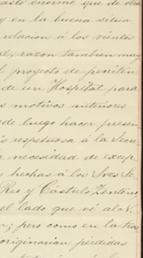 gasto enorme que de otra
y en la buena setia
relacion á los vientos
el, razon tambien muy
el proyecto de peniten
de un Hospital para
s motivos interiores
de luego hacer presen
is respetuosa á la Secre
a necesidad de escep
s hechas á los Sres. Lc.
Rio y Cástulo Zenteno
el lado que vé al N.
n; pero como en la tra
originarian pérdidas